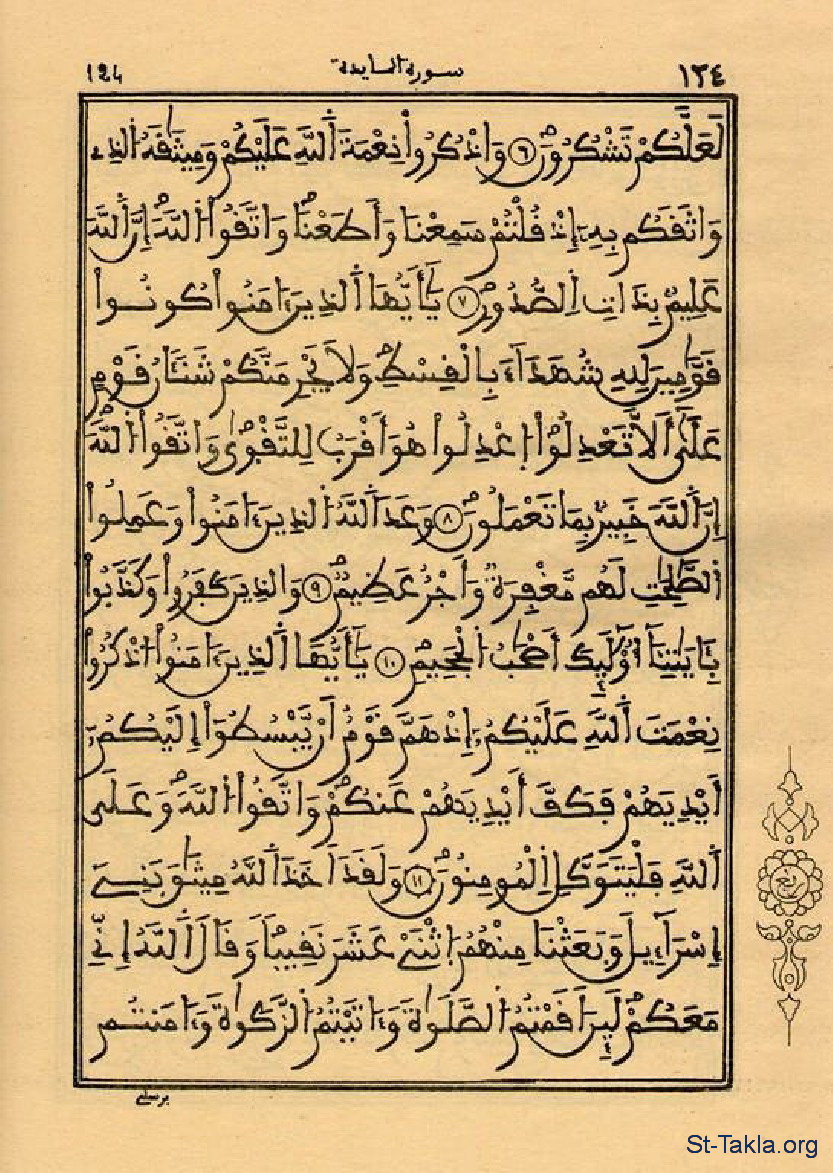 ١٢٤ سورة المايدة 124
لَعَلَّكُمْ تَشْكُرُونَ ٦ وَاذْكُرُواْ نِعْمَةَ اَللَّهِ عَلَيْكُمْ وَمِيثَٰقَهُ اُلذِے
وَاثَقَكُم بِهِۦٓ إِذْ قُلْتُمْ سَمِعْنَا وَأَطَعْنَا وَاتَّقُواْ اُللَّهَ إِنَّ اَللَّهَ
عَلِيمٌۢ بِذَاتِ اِلصُّدُورِ ٧ يَٰٓأَيُّهَا اَلذِينَ ءَامَنُواْ كُونُواْ
قَوَّٰمِينَ لِلهِ شُهَدَآءَ بِالْقِسْطِ وَلَا يَجْرِمَنَّكُمْ شَنَـَٔانُ قَوْمٍ
عَلَىٰٓ أَلَّا تَعْدِلُواْ اُعْدِلُواْ هُوَ أَقْرَبُ لِلتَّقْوَىٰ وَاتَّقُواْ اُللَّهَ
إِنَّ اَللَّهَ خَبِيرٌۢ بِمَا تَعْمَلُونَ ٨ وَعَدَ اَللَّهُ اُلذِينَ ءَامَنُواْ وَعَمِلُواْ
اُلصَّٰلِحَٰتِ لَهُم مَّغْفِرَةٌ وَأَجْرٌ عَظِيمٌ ٩ وَالذِينَ كَفَرُواْ وَكَذَّبُواْ
بِـَٔايَٰتِنَآ أُوْلَٰٓئِكَ أَصْحَٰبُ اُلْجَحِيمِ ١٠ يَٰٓأَيُّهَا اَلذِينَ ءَامَنُواْ اُذْكُرُواْ
نِعْمَتَ اَللَّهِ عَلَيْكُمُۥٓ إِذْ هَمَّ قَوْمٌ أَنْ يَّبْسُطُوٓاْ إِلَيْكُمُۥٓ
أَيْدِيَهُمْ فَكَفَّ أَيْدِيَهُمْ عَنكُمْ وَاتَّقُواْ اُللَّهَ وَعَلَى
اَللَّهِ فَلْيَتَوَكَّلِ اِلْمُومِنُونَ ١١ وَلَقَدَ اَخَذَ اَللَّهُ مِيثَٰقَ بَنِےٓ
إِسْرَآءِيلَ وَبَعَثْنَا مِنْهُمُ اُثْنَےْ عَشَرَ نَقِيباً وَقَالَ اَللَّهُ إِنِّے
مَعَكُمْ لَئِنَ اَقَمْتُمُ اُلصَّلَوٰةَ وَءَاتَيْتُمُ اُلزَّكَوٰةَ وَءَامَنتُم
برسلي
St-Takla.org